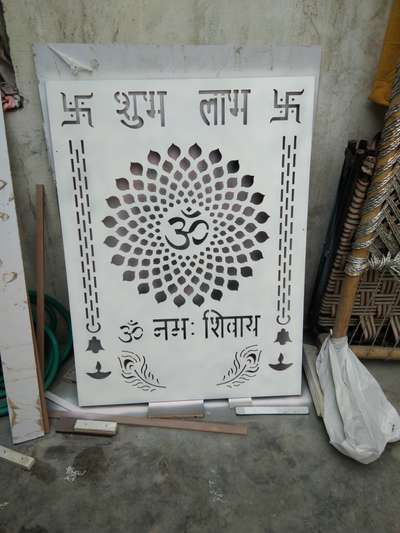 卐 शुभ लाभ 卐
ॐ
ॐ नमः शिवाय